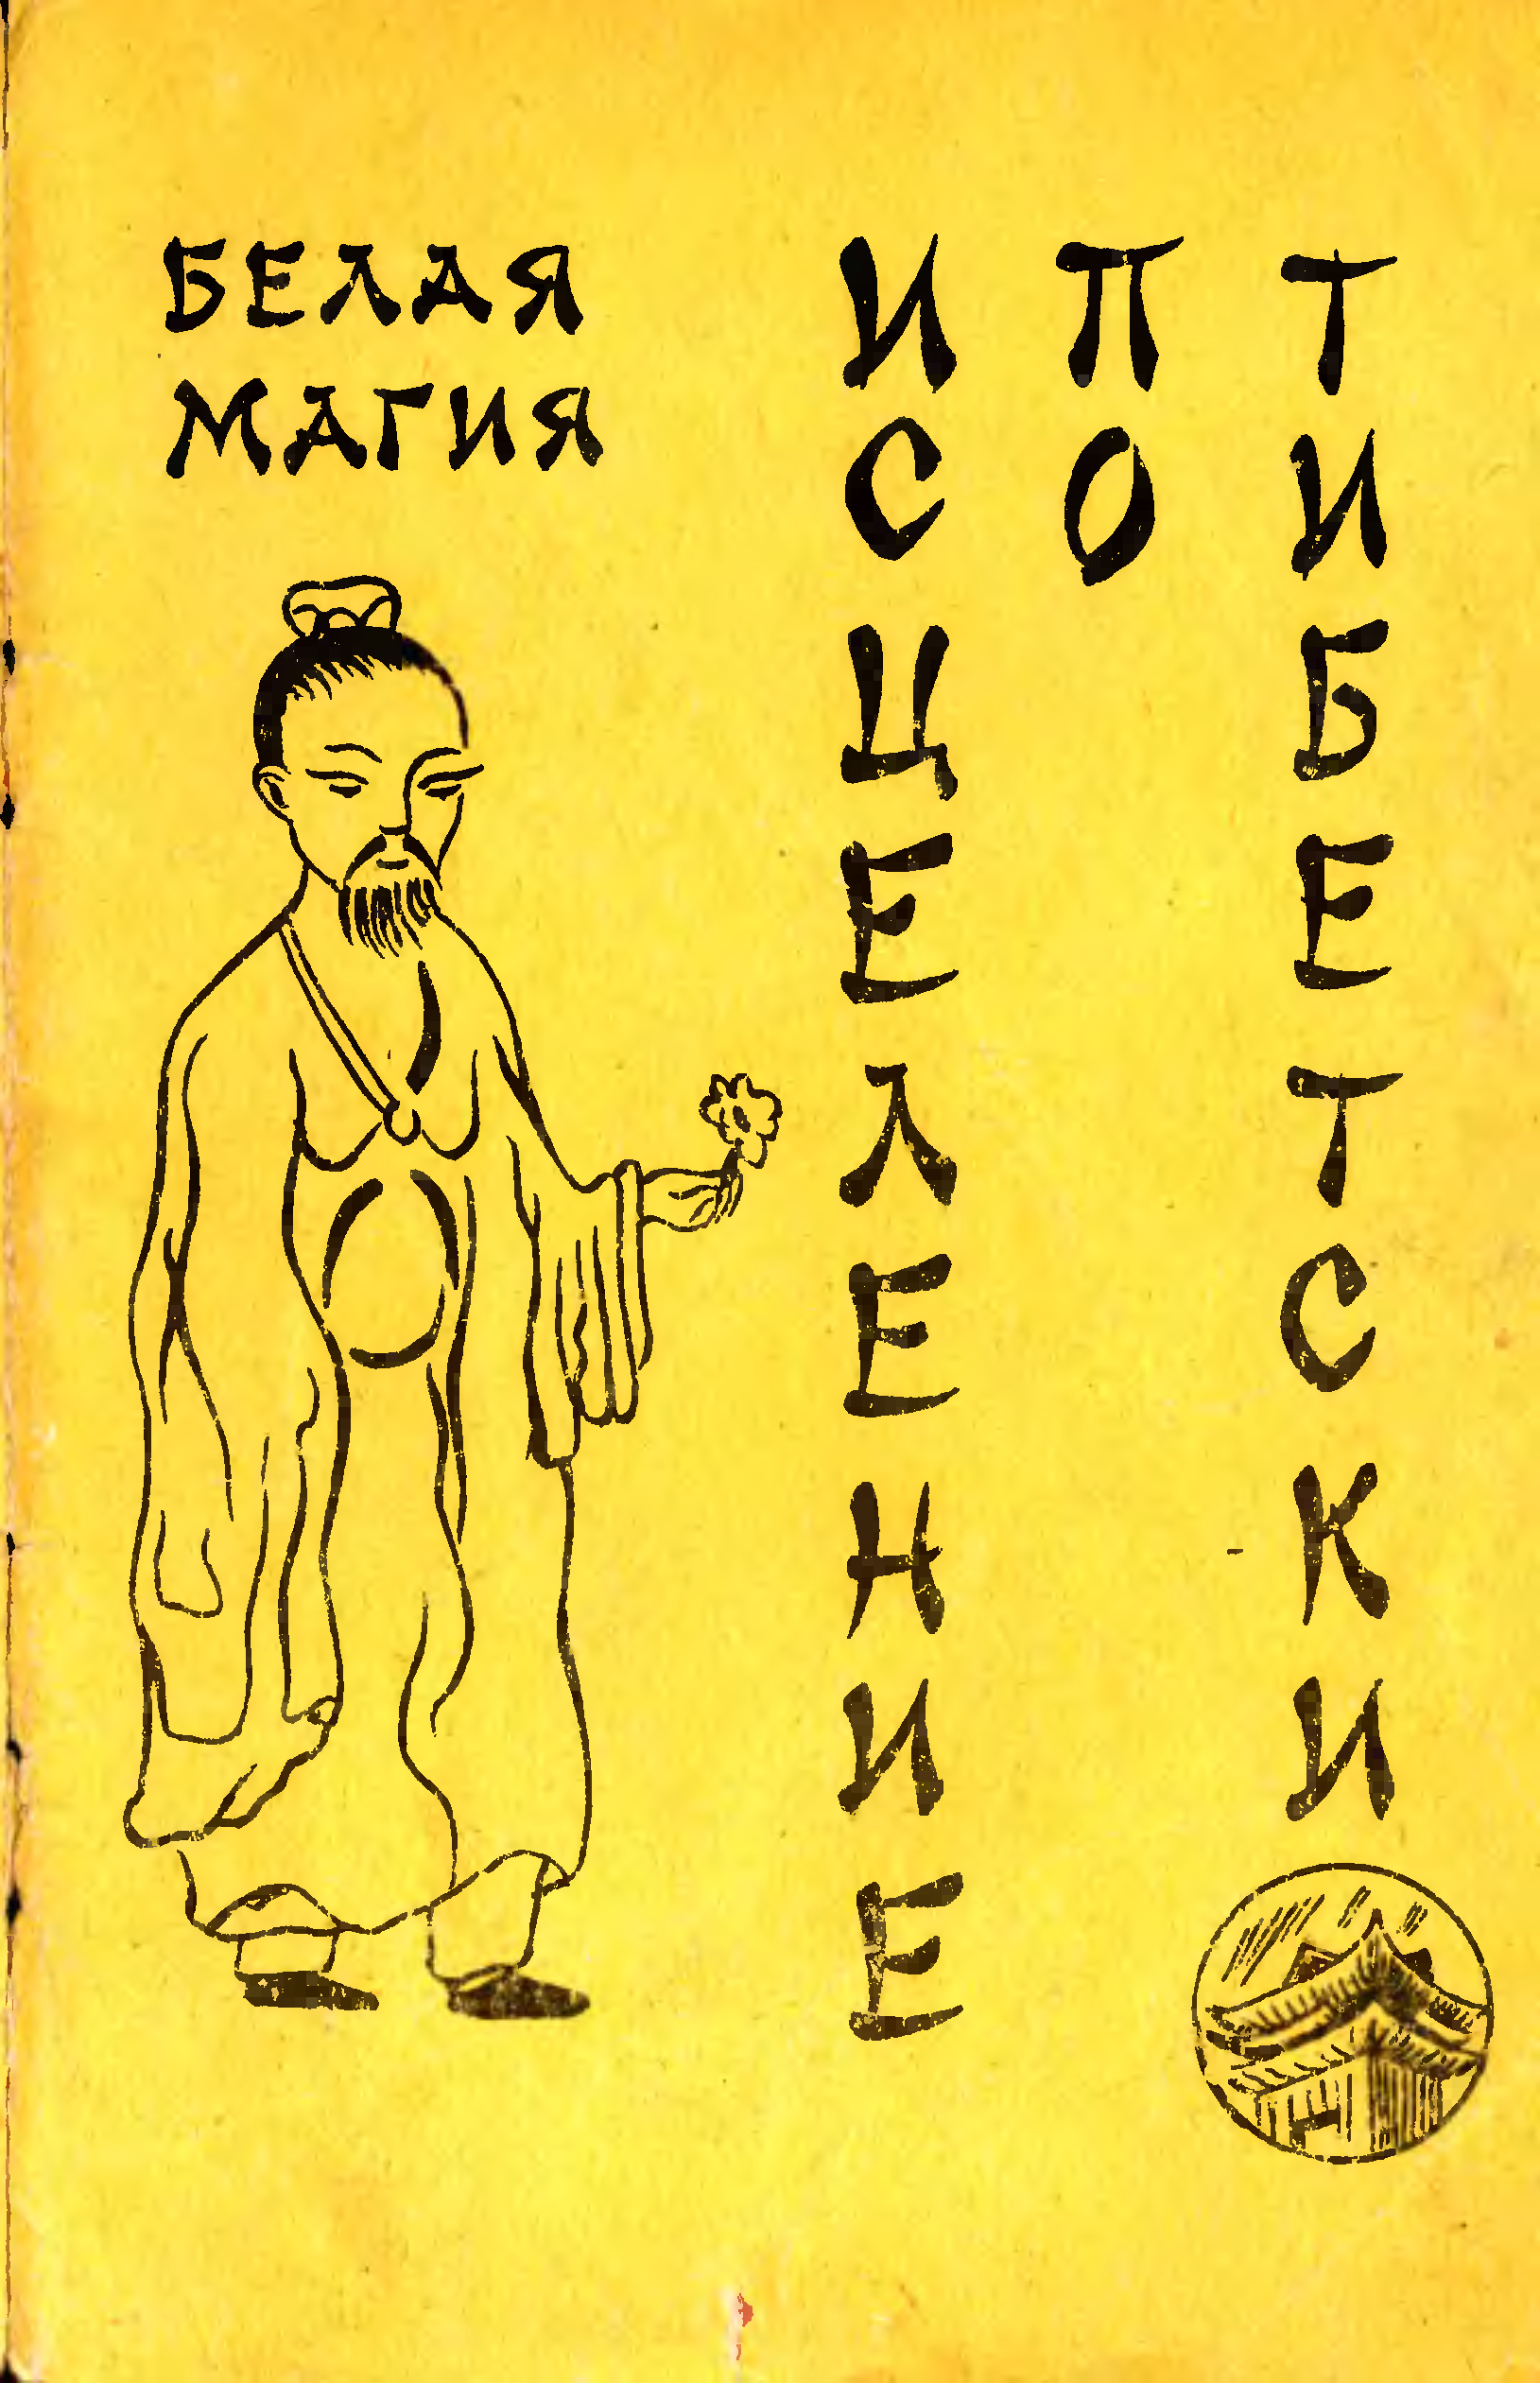 БЕЛАЯ
МАГИЯ
ИСЦЕЛЕНИЕ
ПО
ТИБЕТСКИ